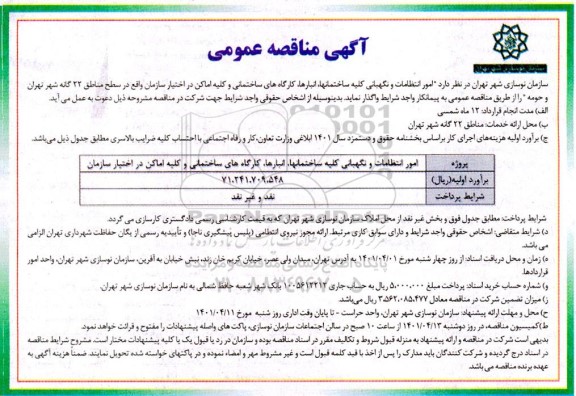 آگهی مناقصه عمومی
سازمان نوسازی شهر تهران
سازمان نوسازی شهر تهران در نظر دارد "امور انتظامات و نگهبانی کلیه ساختمانها، انبارها، کارگاه های ساختمانی و کلیه اماکن در اختیار سازمان واقع در سطح مناطق ۲۲ گانه شهر تهران
و حومه" را از طریق مناقصه عمومی به پیمانکار واجد شرایط واگذار نماید. بدینوسیله از اشخاص حقوقی واجد شرایط جهت شرکت در مناقصه مشروحه ذیل دعوت به عمل می آید.
الف) مدت انجام قرارداد: ۱۲ ماه شمسی
ب) محل ارائه خدمات: مناطق ۲۲ گانه شهر تهران
ج) برآورد اولیه هزینه‌های اجرای کار براساس بخشنامه حقوق و دستمزد سال ۱۴۰۱ ابلاغی وزارت تعاون، کار و رفاه اجتماعی با احتساب کلیه ضرایب بالاسری مطابق جدول ذیل می‌باشد.
پروژه امور انتظامات و نگهبانی کلیه ساختمانها، انبارها، کارگاه های ساختمانی و کلیه اماکن در اختیار سازمان
برآورد اولیه(ریال) ۷۱.۲۴۱.۷۰۹.۵۴۸
شرایط پرداخت نقد و غیر نقد
شرایط پرداخت: مطابق جدول فوق و بخش غیر نقد از محل املاک سازمان نوسازی شهر تهران که به قیمت کارشناس رسمی دادگستری کارسازی می گردد.
د) شرایط متقاضی: اشخاص حقوقی واجد شرایط و دارای سوابق کاری مرتبط. ارائه مجوز نیروی انتظامی (پلیس پیشگیری ناجا) و تأییدیه رسمی از یگان حفاظت شهرداری تهران الزامی
می باشد.
ه) زمان و محل دریافت اسناد: از روز چهار شنبه مورخ ۱۴۰۱/۰۴/۰۱ به آدرس تهران، میدان ولی عصر، خیابان کریم خان زند، نبش خیابان به آفرین، سازمان نوسازی شهر تهران، واحد امور
قراردادها.
و) شماره حساب خرید اسناد: پرداخت مبلغ ۵.۰۰۰.۰۰۰ ریال به حساب جاری ۱۰۰۵۶۱۳۲۱۲ بانک شهر شعبه حافظ شمالی به نام سازمان نوسازی شهر تهران.
ز) میزان تضمین شرکت در مناقصه معادل ۳.۵۶۲.۰۸۵.۴۷۷ ریال می‌باشد.
ح) محل و مهلت ارائه پیشنهاد: سازمان نوسازی شهر تهران، واحد حراست - تا پایان وقت اداری روز شنبه مورخ ۱۴۰۱/۰۴/۱۱
ط)کمیسیون مناقصه، در روز دوشنبه ۱۴۰۱/۰۴/۱۳ از ساعت ۱۰ صبح در سالن اجتماعات سازمان نوسازی، پاکت های واصله پیشنهادات را مفتوح و قرائت خواهد نمود.
بدیهی است شرکت در مناقصه و ارائه پیشنهاد به منزله قبول شروط و تکالیف مقرر در اسناد مناقصه بوده و سازمان در رد یا قبول یک یا کلیه پیشنهادات مختار است. مشروح شرایط مناقصه
در اسناد درج گردیده و شرکت کنندگان باید مدارک را پس از اخذ با قید کلمه قبول است و غیر مشروط مهر و امضاء نموده و در پاکتهای خواسته شده تحویل نمایند. ضمناً هزینه آگهی به
عهده برنده مناقصه می باشد.